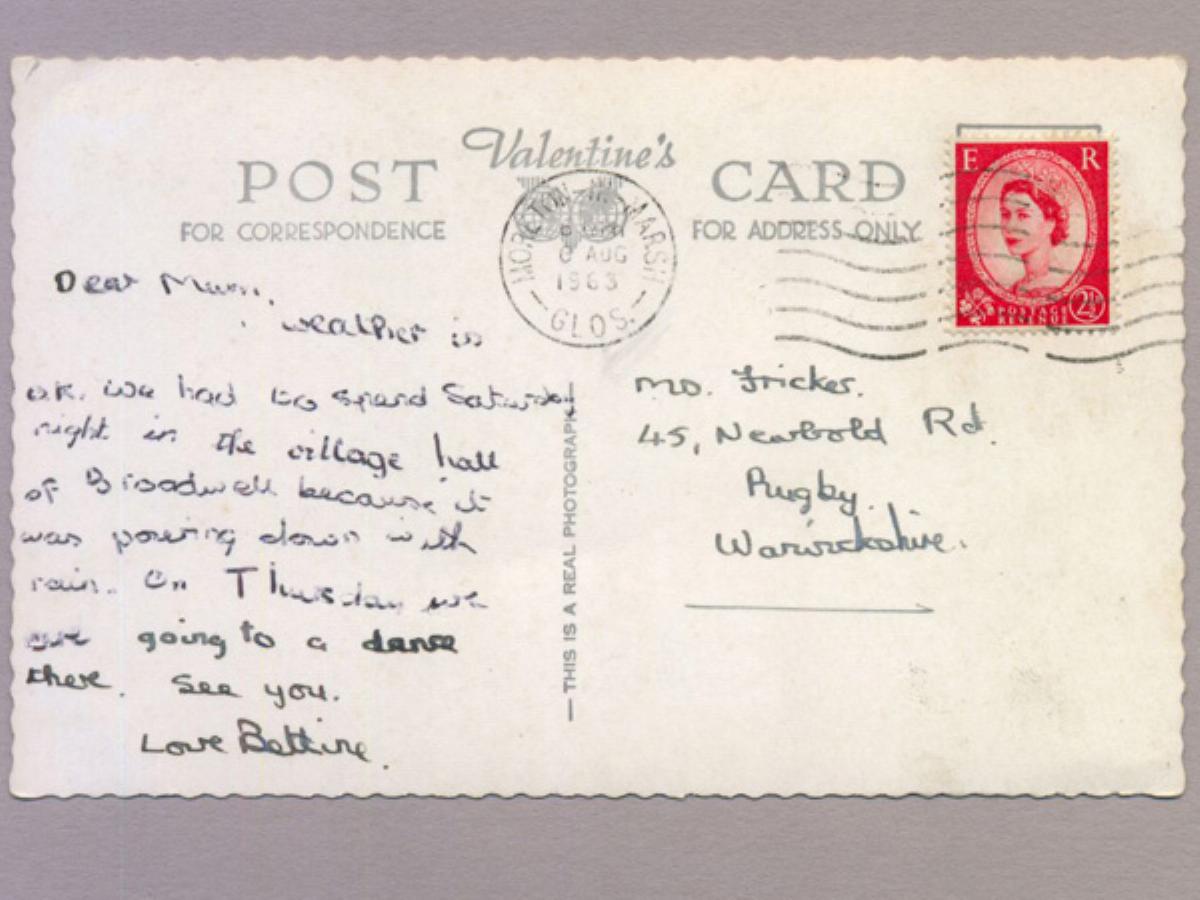 Valentine's
POST CARD
FOR CORRESPONDENCE
FOR ADDRESS ONLY
MORETON-IN-MARSH
AUG
1963
GLOS.
E R
2½
Dear Mum,
weather is
o.k. We had to spend Saturday
night in the village hall
of Broadwell because it
was pouring down with
rain. On Thursday we
are going to a dance
there. See you.
Love Bettine.
— THIS IS A REAL PHOTOGRAPH —
Fricker.
45, Newbold Rd.
Rugby
Warwickshire.